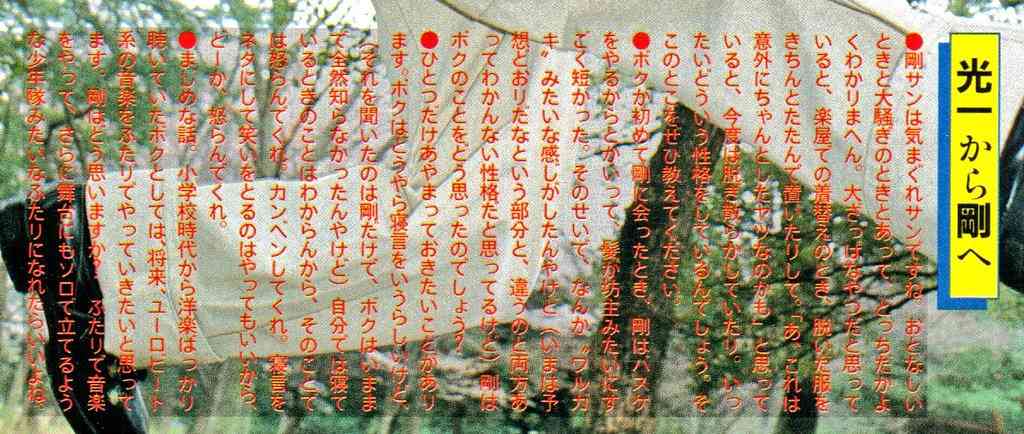 光一から剛へ
●剛サンは気まぐれサンですね。おとなしい
ときと大騒ぎのときとあって、どっちだかよ
くわかりまへん。大ざっぱなやつだと思って
いると、楽屋での着替えのとき、脱いだ服を
きちんとたたん。置いたりして、「あ、これは
意外にちゃんとしたヤツなのかも」と思って
いると、今度は脱ぎ散らかしていたり。いっ
たいどういう性格をしているんでしょう。そ
このとこをぜひ教えてください。
●ボクが初めて剛に会ったとき、剛は、バスケ
をやるからとかいって、髪が坊主みたいにす
ごく短かった。そのせいで、なんか、“ワルガ
キ”みたいな感じがしたんやけど(いまは予
想どおりだなという部分と、違うのと両方あ
ってわかんない性格だと思ってるけど)、剛は
ボクのことをどう思ったのでしょう?
●ひとつだけあやまっておきたいことがあり
ます。ボクはどうやら寝言をいうらしいけど、
(それを聞いたのは剛だけで、ボクはいままで
全然知らなかったんやけど)自分では寝て
いるときのことはわからんから、そのことで
は怒らんでくれ。カンベンしてくれ。寝言を
ネタにして笑いをとるのはやってもいいから、
どーか、怒らんでくれ。
●まじめな話、小学校時代から洋楽ばっかり
聴いていたボクとしては、将来、ユーロビート
系の音楽をふたりでやっていきたいと思って
ます。剛はどう思いますか? ふたりで音楽
をやって、さらに舞台にもソロで立てるよう
な少年隊みたいなふたりになれたらいいよね。